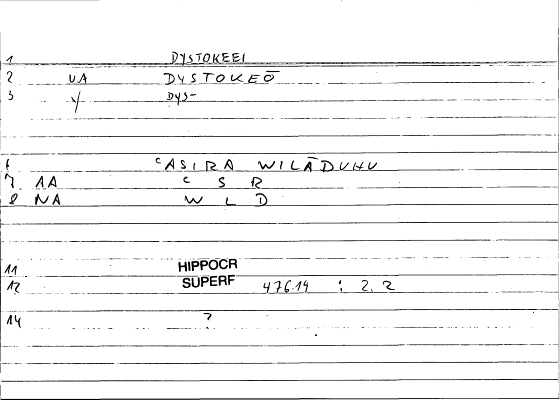 1 DYSTOKEEI
2 VA DYSTOKEŌ
3 Y DYS-
6 ʿASIRA WILĀDUHU
7 1A ʿ S R
8 NA W L D
11 HIPPOCR
12 SUPERF 47614 : 2. 2
14 ?